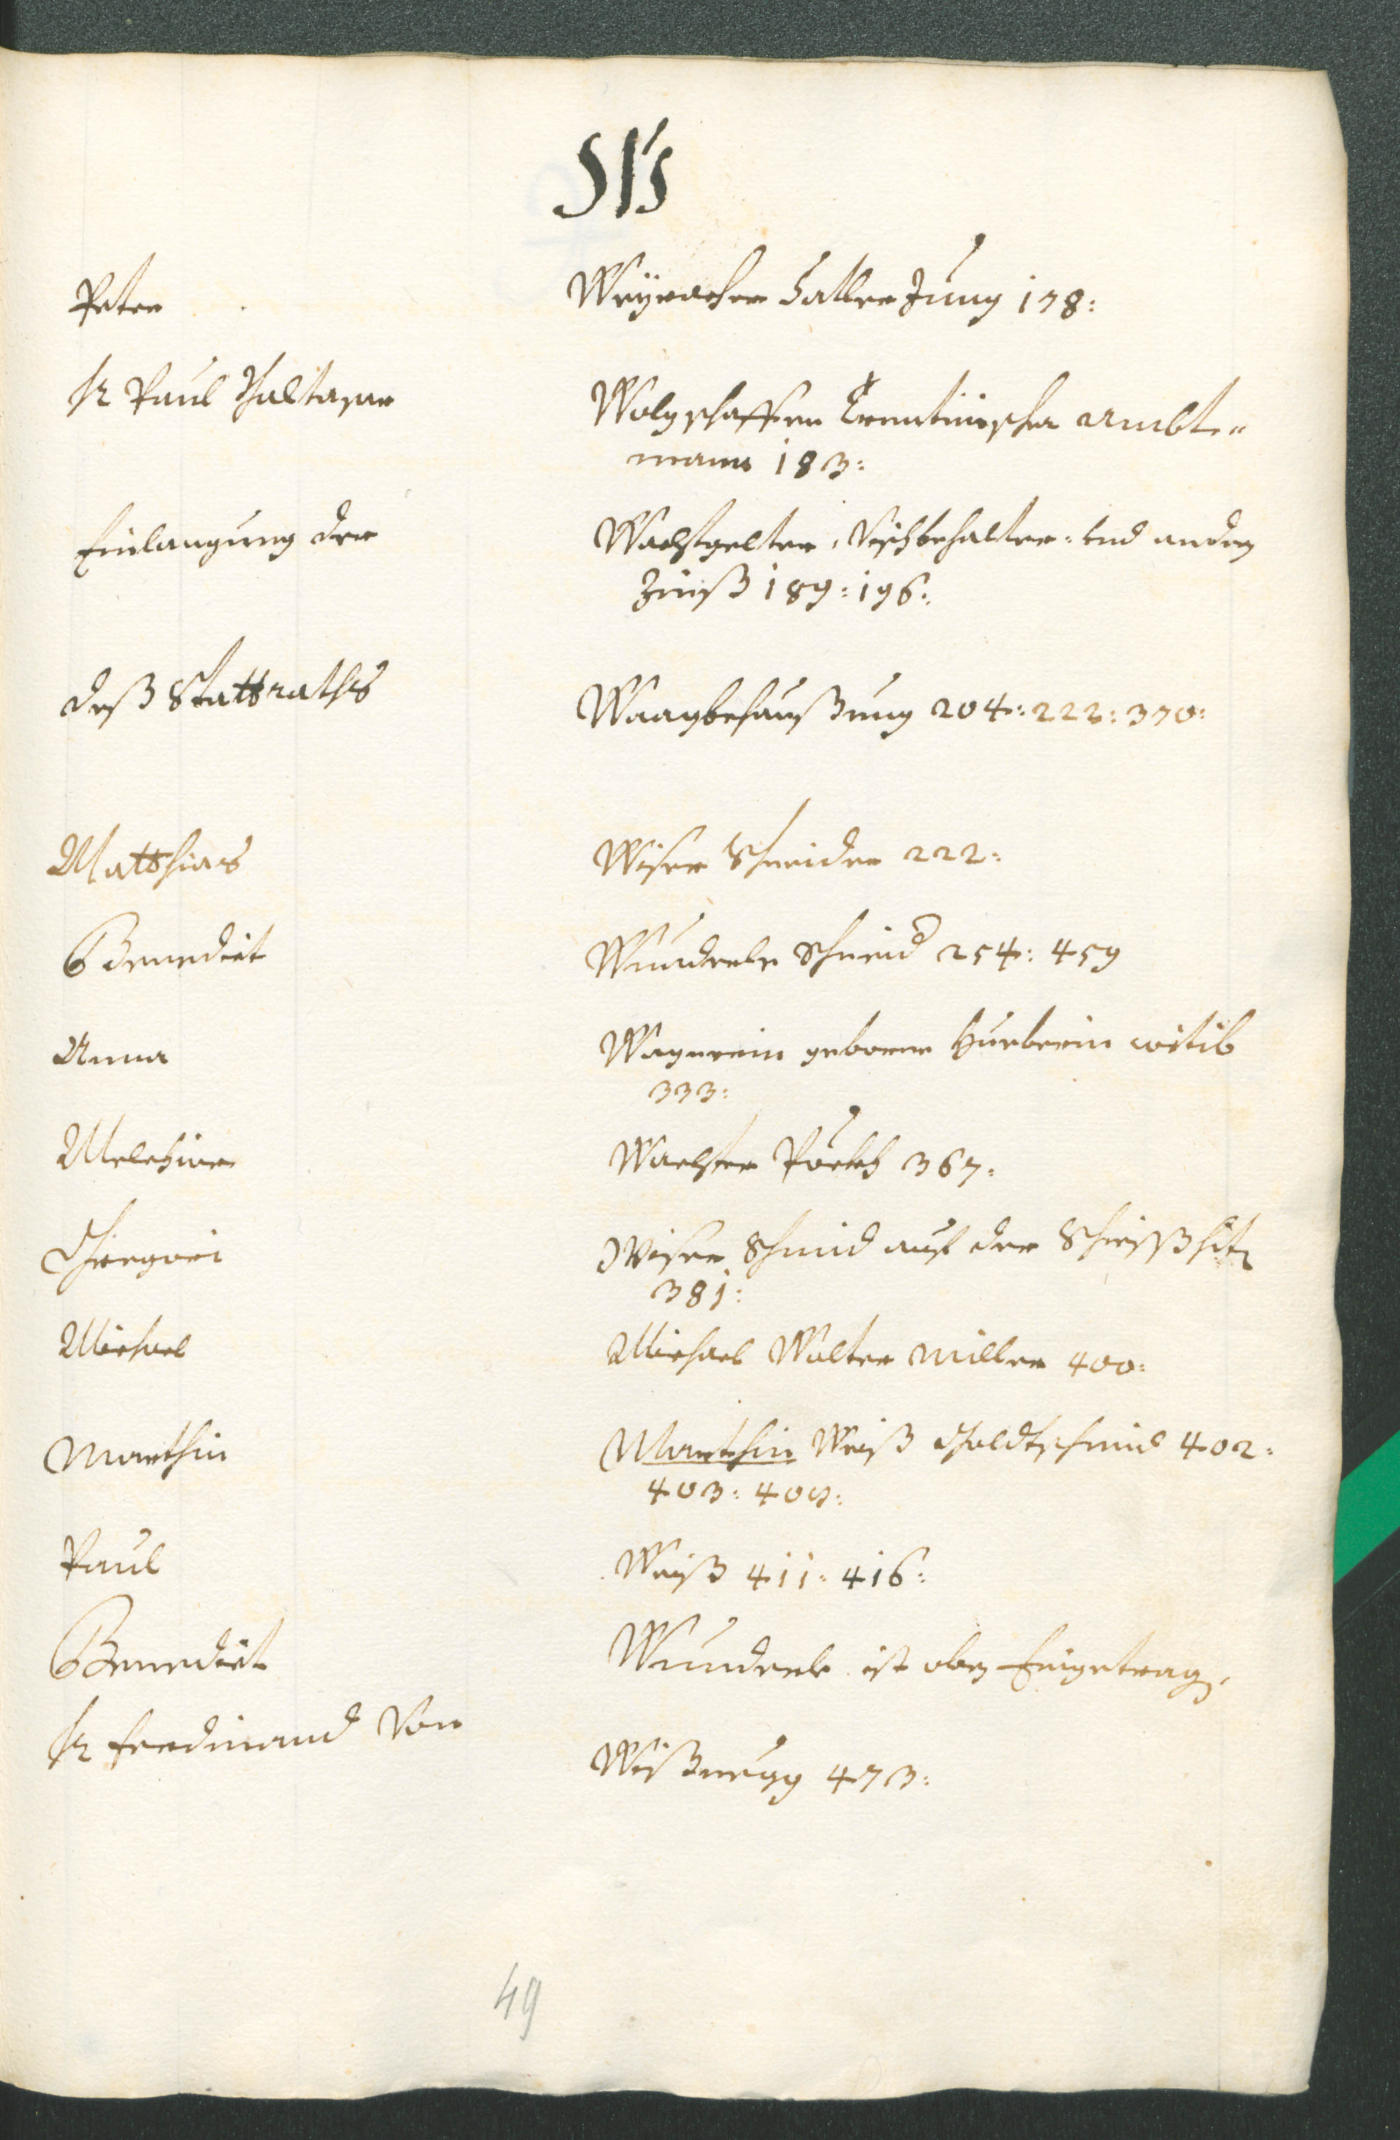 W
Peter Weyracher Sattler Jung 178:
Hr Paul Balthasar Wolgschaffen Trentinischer Ambt-
mann 183:
Einlangung der Wachtgelter, Vischbehalter: und andern
Zinß 189: 196:
deß Stattraths Waagbehaußung 204: 222: 370:
Matthias Wiser Schneider 222:
Benedict Wunderle Schneid 254: 459
Anna Wagnerin geborne Hueberin witib
333:
Melchior Wachter 367:
Gregori Wiser Schmid auf der
381:
Michael Michael Walter Miller 400:
Marthin Marthin Weiß Goldtschmid 402:
403: 409:
Paul Weiß 411: 416:
Benedict Wunderle ist oben Eingetragen
Hr Ferdinand Von Wißnegg 473:
49